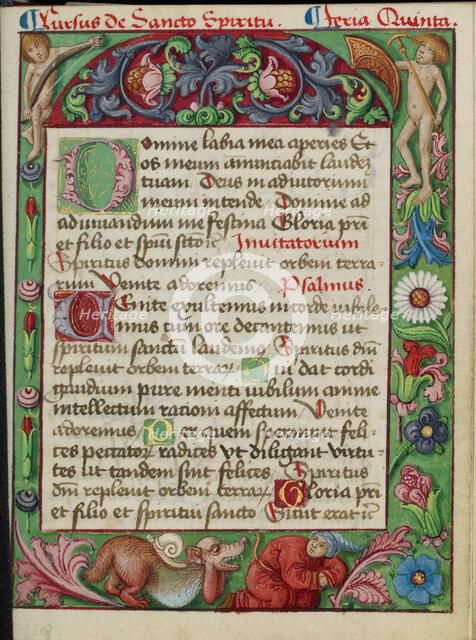 Cursus de Sancto Spiritu. Feria Quinta.
Domine labia mea aperies Et
os meum annunciabit laudez
tuam Deus in adiutorium
meum intende Domine ad
adiuuandum me festina Gloria pri
et filio et spui scto Inuitatorium
Spiritus domini repleuit orbem terra-
rum Venite adoremus. Psalmus.
Venite exultemus in corde iubilo
unius cum ore decantemus ut
spiritum sanctu laudemus Spiritus dni
repleuit orbem terrar dat cordi
gaudium pure menti iubilum anime
intellectum rationi affectum Venite
adoremus Per quem speramus feli-
ces peccator radices Ut diligant virtu-
tes ut tandem sint felices Spiritus
dni repleuit orbem terrar Gloria pri
et filio et spiritui sancto Sicut erat
Heritage
Heritage
Heritage
Heritage